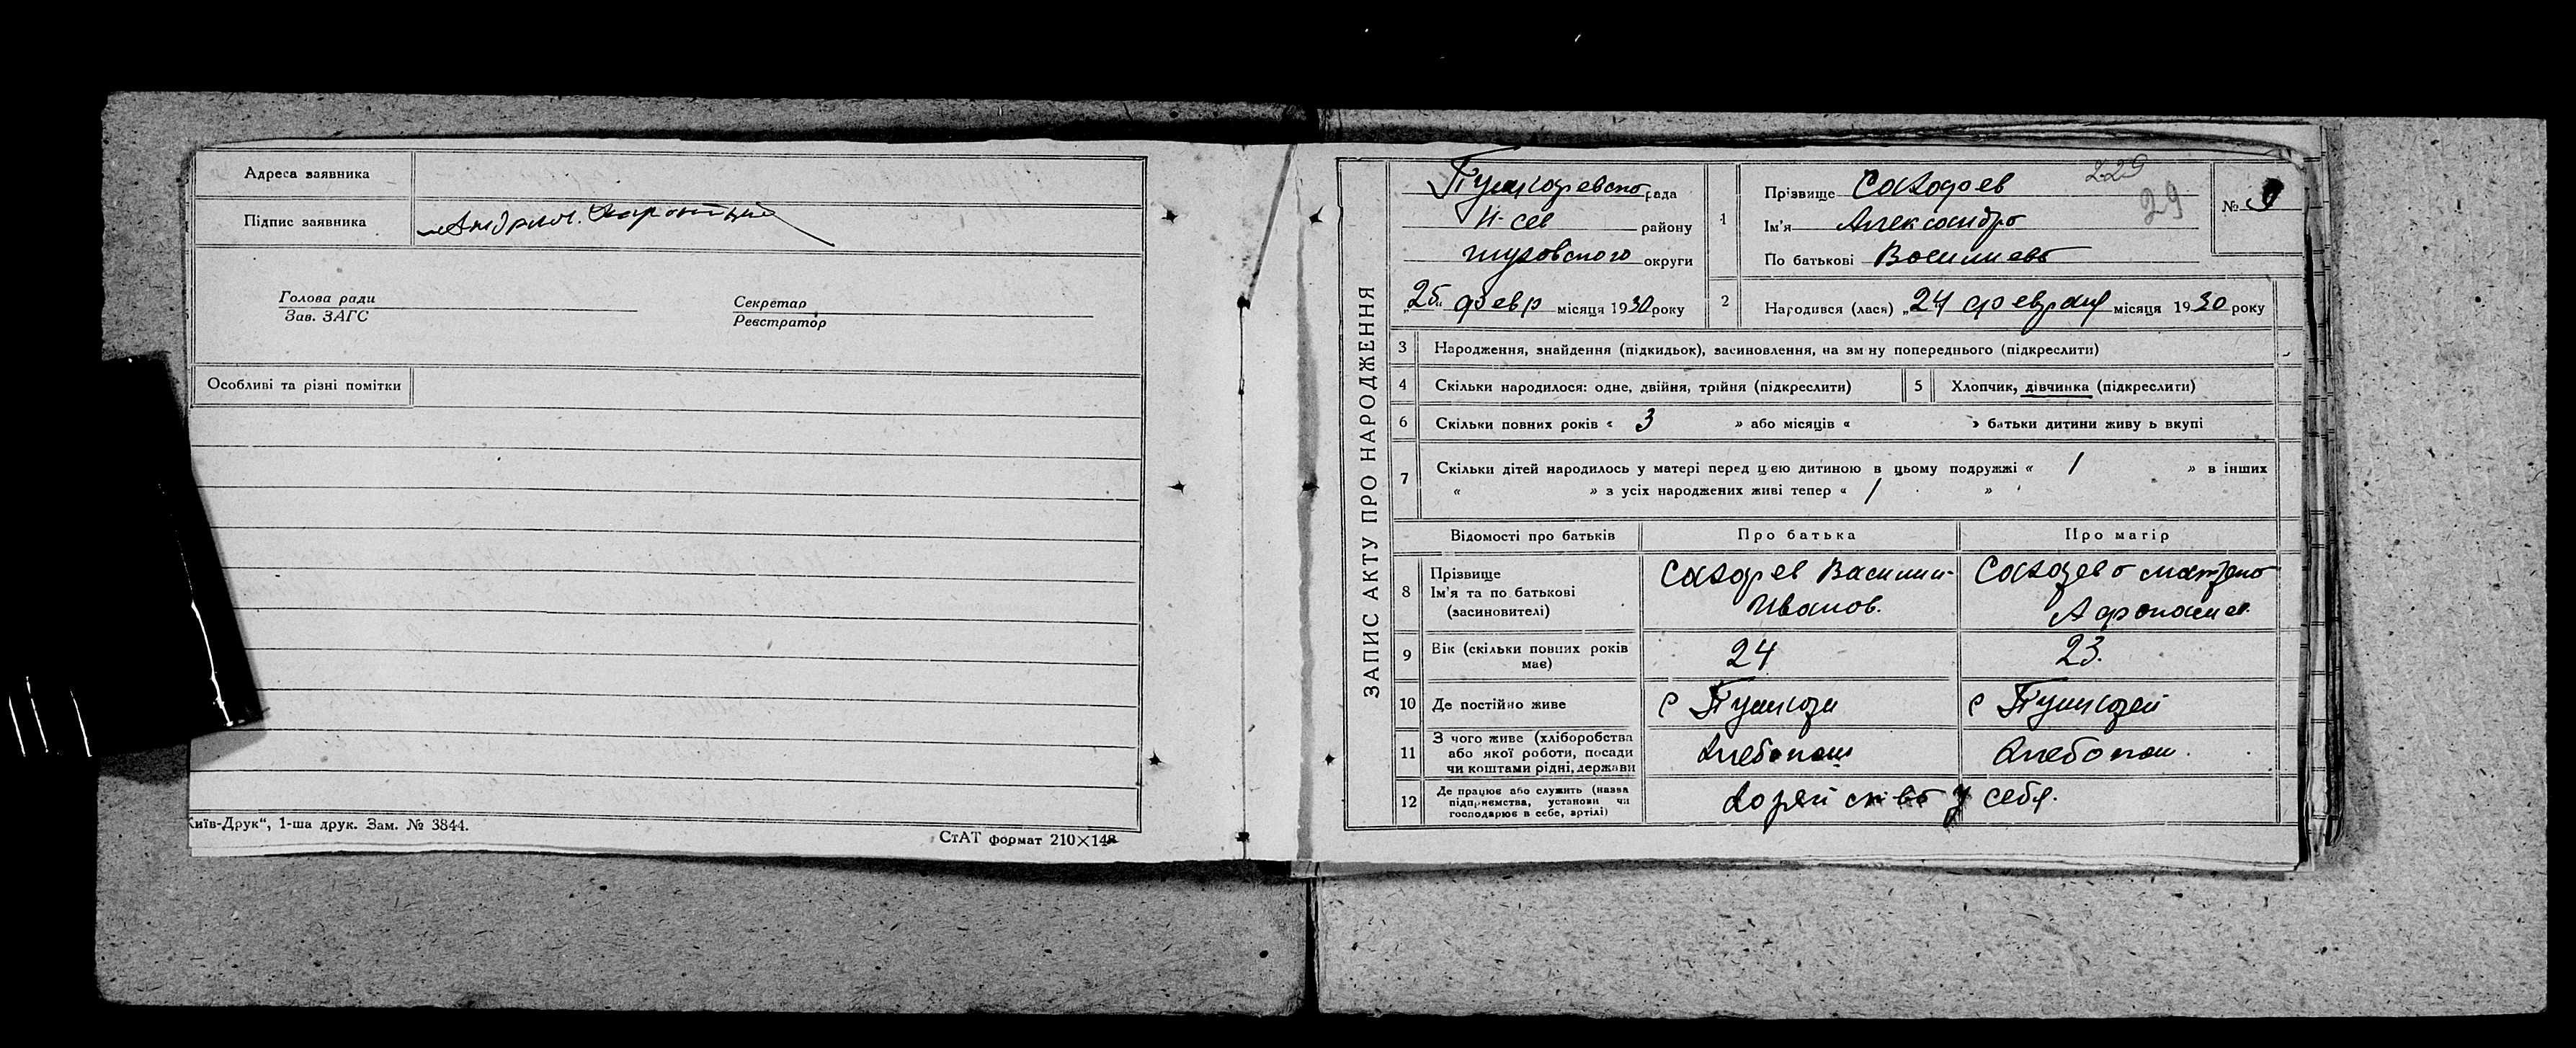 Адреса заявника
Підпис заявника
Голова ради
Зав. ЗАГС
Секретар
Реєстратор
Особливі та різні помітки
Київ-Друк“, 1-ша друк. Зам. № 3844.
СтАТ формат 210×148
ЗАПИС АКТУ ПРО НАРОДЖЕННЯ
рада
Н-Сев району
глуховского округи
„25„ февр місяця 1930 року
1
Прізвище
Ім'я Александра
По батькові Васильев
229
29
№ 9
2 Народився (лася) „24 февраля місяця 1930 року
3 Народження, знайдення (підкидьок), засиновлення, на зміну попереднього (підкреслити)
4 Скільки народилося: одне, двійня, трійня (підкреслити)
5 Хлопчик, дівчинка (підкреслити)
6 Скільки повних років « 3 » або місяців « » батьки дитини живуть вкупі
7 Скільки дітей народилось у матері перед цією дитиною в цьому подружжі « 1 » в інших
« » з усіх народжених живі тепер « 1 »
Відомості про батьків Про батька Про матір
8 Прізвище
Ім'я та по батькові
(засиновителі)
Васили
Иванов.
9 Вік (скільки повних років має) 24 23.
10 Де постійно живе с с
11 З чого живе (хліборобства
або якої роботи, посади
чи коштами рідні, держави
Хлебопаш Хлебопаш.
12 Де працює або служить (назва
підприємства, установи чи
господарює в себе, артілі)
у себя.